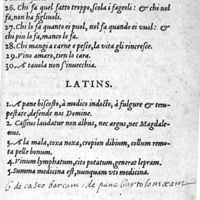 26. Chi fa quel fatto troppo, scola i fagoli: & chi nol
fa, non ha figliuoli.
27. Chi lo fa quanto ei puol, nol fa quando ei vuol: &
chi piu lo fa, manco lo fa.
28. Chi mangia carne e pesce, la vita gli rincresce.
29. Vino amaro, tien lo caro.
30. A tavola non s'inuecchia.
LATINS.
1. A pane biscosto, à medico indocto, à fulgure & tem-
pestate, defende nos Domine.
2. Caseus laudatur non albus, nec argus, nec Magdale-
nus.
3. A la mala, toxa noxa, cropien dibium, cullum remo-
ta pelle bonum.
4. Vinum lymphatum, cito potatum, generat lepram.
5. Summa medicina est, nunquam uti medicina.
6 de casco barcam: de pane Bartolomæam